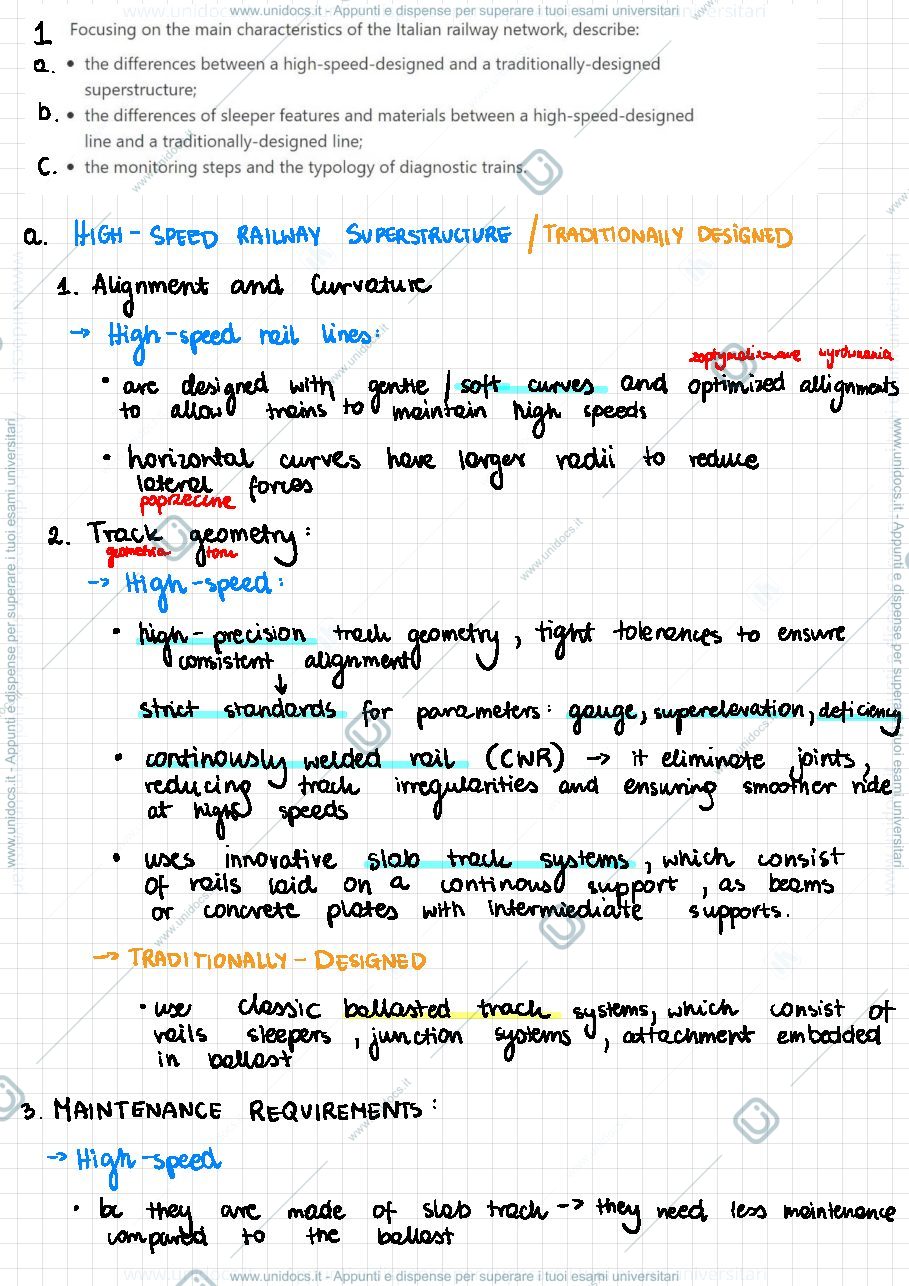 www.unidocs.it - Appunti e dispense per superare i tuoi esami universitari
1 Focusing on the main characteristics of the Italian railway network, describe:
a. • the differences between a high-speed-designed and a traditionally-designed
superstructure;
b. • the differences of sleeper features and materials between a high-speed-designed
line and a traditionally-designed line;
C. • the monitoring steps and the typology of diagnostic trains.
a. HIGH - SPEED RAILWAY SUPERSTRUCTURE / TRADITIONALLY DESIGNED
1. Alignment and Curvature
→ High-speed rail lines:
zoptymalizowane wyrównania
• are designed with gentle / soft curves and optimized allignments
to allow trains to maintain high speeds
• horizontal curves have larger radii to reduce
lateral forces
poprzeczne
2. Track geometry:
geometria toru
→ High-speed:
• high-precision track geometry, tight tolerances to ensure
consistent alignment
↓
strict standards for parameters: gauge, superelevation, deficiency
• continously welded rail (CWR) → it eliminate joints,
reducing track irregularities and ensuring smoother ride
at high speeds
• uses innovative slab track systems, which consist
of rails laid on a continous support, as beams
or concrete plates with intermiediate supports.
→ TRADITIONALLY - DESIGNED
• use classic ballasted track systems, which consist of
rails sleepers, junction systems, attachment embedded
in ballast
3. MAINTENANCE REQUIREMENTS:
→ High-speed
• bc they are made of slab track → they need less maintenance
compared to the ballast
www.unidocs.it - Appunti e dispense per superare i tuoi esami universitari